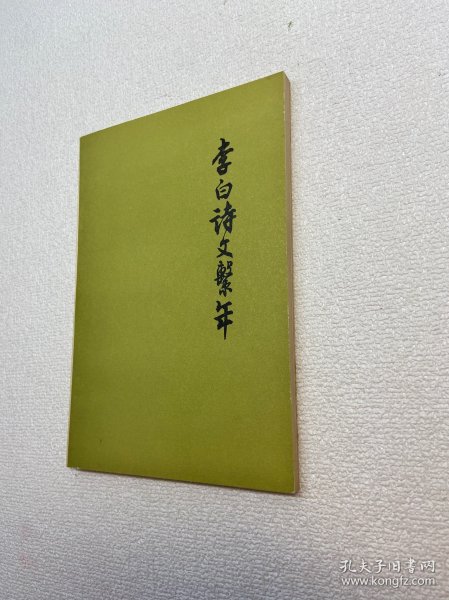 李白诗文繫年
孔夫子旧书网
www.kongfz.com